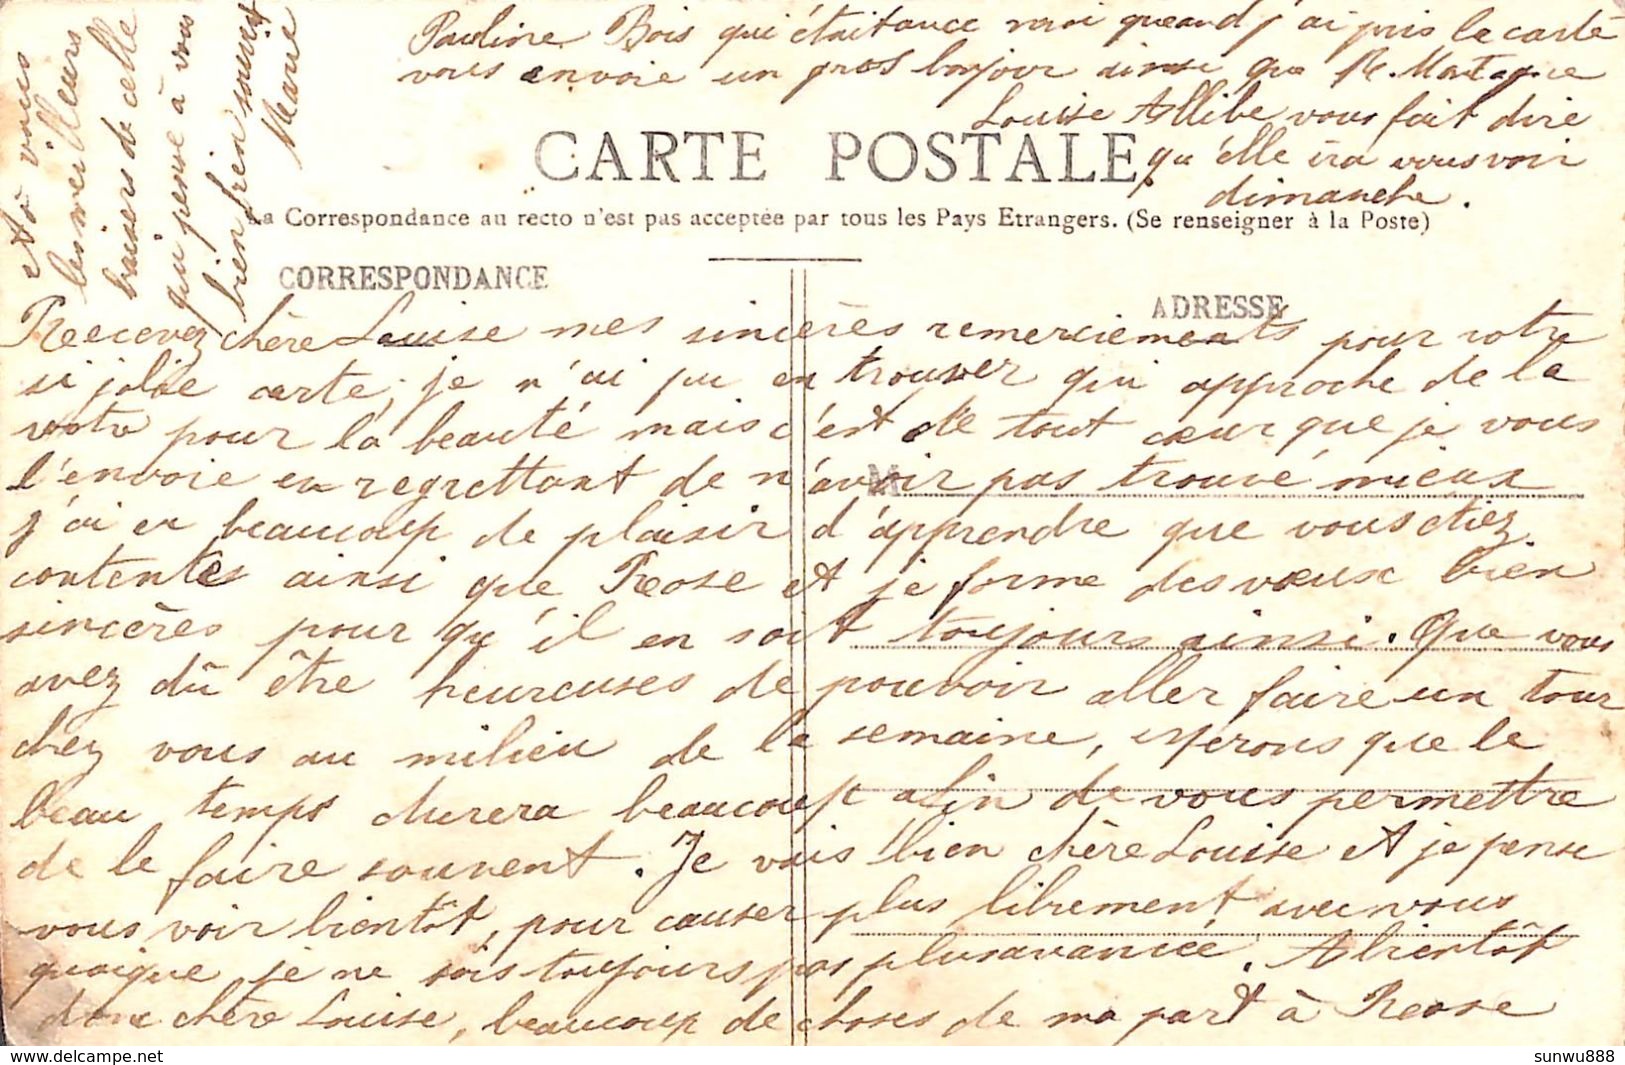 Pauline Bois qui était avec moi quand j'ai pris la carte
vous envoie un gros bonjour ainsi que R. Montagne
Louise Allibe vous fait dire
qu'elle ira vous voir
dimanche.
CARTE POSTALE
La Correspondance au recto n'est pas acceptée par tous les Pays Etrangers. (Se renseigner à la Poste)
CORRESPONDANCE
ADRESSE
M
Recevez chère Louise mes sincères remerciements pour votre
si jolie carte, je n'ai pu en trouver qui approche de la
votre pour la beauté mais c'est de tout cœur que je vous
l'envoie en regrettant de n'avoir pas trouvé mieux
j'ai eu beaucoup de plaisir d'apprendre que vous étiez
contentes ainsi que Rose et je forme des vœux bien
sincères pour qu'il en soit toujours ainsi. Que vous
avez dû être heureuses de pouvoir aller faire un tour
chez vous au milieu de la semaine, espérons que le
beau temps durera beaucoup afin de vous permettre
de le faire souvent. Je vais bien chère Louise et je pense
vous voir bientôt, pour causer plus librement avec vous
quoique je ne sois toujours pas plus avancée. A bientôt
donc chère Louise, beaucoup de choses de ma part à Rose
et à vous
les meilleurs
baisers de celle
qui pense à vous
bien bien souvent
Marie
sunwu888